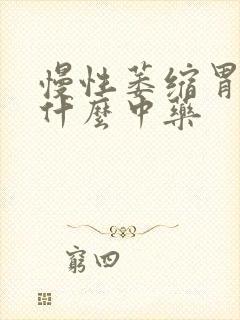 慢性萎缩胃
什麼中藥
窮四